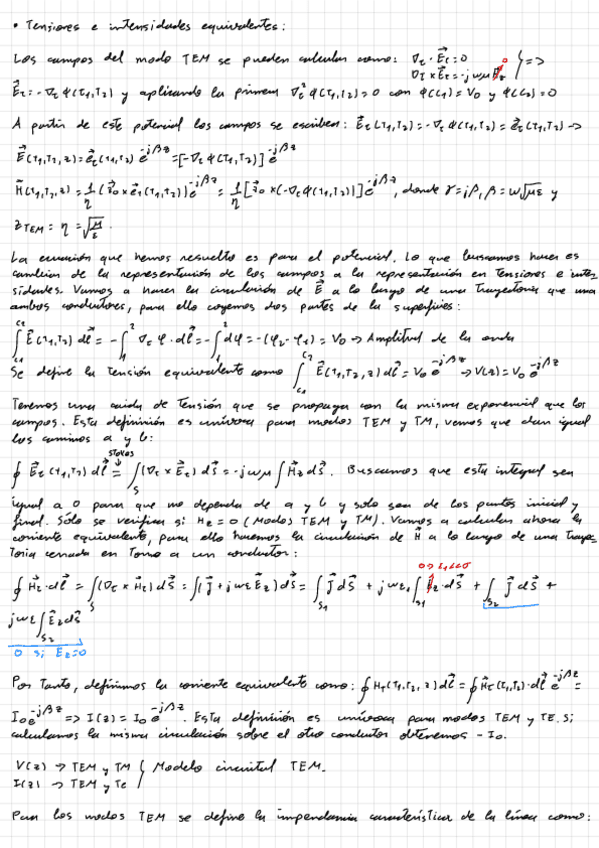 • Tensiones e intensidades equivalentes:
Los campos del modo TEM se pueden calcular como: ∇t · E⃗t = 0
∇t × E⃗t = -jωμ H⃗z 0 } =>
E⃗t = -∇t φ(τ1,τ2) y aplicando la primera ∇t² φ(τ1,τ2) = 0 con φ(C1) = V0 y φ(C2) = 0
A partir de este potencial los campos se escriben: E⃗t(τ1,τ2) = -∇t φ(τ1,τ2) = e⃗t(τ1,τ2) →
E⃗(τ1,τ2,z) = e⃗t(τ1,τ2) e^{-jβz} = [-∇t φ(τ1,τ2)] e^{-jβz}
H⃗(τ1,τ2,z) = 1/η (z⃗0 × e⃗t(τ1,τ2)) e^{-jβz} = 1/η [z⃗0 × (-∇t φ(τ1,τ2))] e^{-jβz}, donde γ = jβ, β = ω√με y
zTEM = η = √μ/ε .
La ecuación que hemos resuelto es para el potencial. Lo que buscamos hacer es
cambiar de la representación de los campos a la representación en tensiones e inten
sidades. Vamos a hacer la circulación de E⃗ a lo largo de una trayectoria que una
ambos conductores, para ello cogemos dos partes de la superficies:
∫_{C1}^{C2} E⃗(τ1,τ2) dl⃗ = -∫_1^2 ∇t φ · dl⃗ = -∫_1^2 dφ = -(φ2 - φ1) = V0 → Amplitud de la onda
Se define la tensión equivalente como ∫_{C1}^{C2} E⃗(τ1,τ2,z) dl⃗ = V0 e^{-jβz} → V(z) = V0 e^{-jβz}
Tenemos una caida de tensión que se propaga con la misma exponencial que los
campos. Esta definición es unívoca para modos TEM y TM, vemos que dan igual
los caminos a y b:
∮ E⃗t(τ1,τ2) dl⃗ =(stokes) ∫_S (∇t × E⃗t) ds⃗ = -jωμ ∫ H⃗z ds⃗. Buscamos que esta integral sea
igual a 0 para que no dependa de a y b y solo sea de los puntos inicial y
final. Sólo se verifica si Hz = 0 (Modos TEM y TM). Vamos a calcular ahora la
corriente equivalente, para ello hacemos la circulación de H⃗ a lo largo de una trayec
toria cerrada en torno a un conductor:
∮ H⃗t · dl⃗ = ∫_S (∇t × H⃗t) ds⃗ = ∫(J⃗ + jωε E⃗z) ds⃗ = ∫_{S1} J⃗ ds⃗ + jωε1 ∫_{S1} E⃗z · ds⃗ + ∫_{S2} J⃗ ds⃗ +
jωε ∫_{S2} E⃗z ds⃗
0 si Ez=0
Por tanto, definimos la corriente equivalente como: ∮ HT(τ1,τ2,z) dl⃗ = ∮ H⃗T(τ1,τ2) · dl⃗ e^{-jβz} =
I0 e^{-jβz} => I(z) = I0 e^{-jβz}. Esta definición es unívoca para modos TEM y TE. Si
calculamos la misma circulación sobre el otro conductor obtenemos -I0.
V(z) → TEM y TM } Modelo circuital TEM.
I(z) → TEM y Te
Para los modos TEM se define la impendancia característica de la línea como: